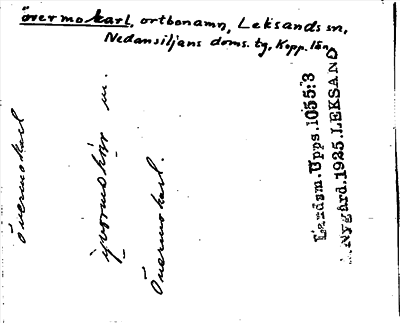 övermokarl, ortbonamn, Leksands sn,
Nedansiljans doms. tg, Kopp. län
övermokarl
m.
Övermokarl.
Landsm.Upps.1055:3
Nygård.1925.LEKSAND